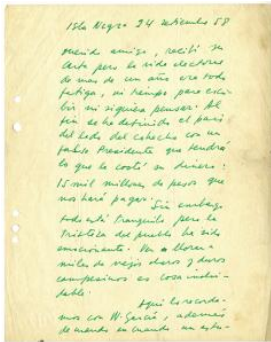 Isla Negra 24 setiembre 58
querido amigo, recibí su
carta pero la vida electoral
de mas de un año era toda
fatiga, ni tiempo para escri-
bir ni siquiera pensar. Al
fin se ha definido el país
del lado del cohecho con un
falso Presidente que tendrá
lo que le costó su dinero:
15 mil millones de pesos que
nos hará pagar. Sin embargo
todo está tranquilo pero la
tristeza del pueblo ha sido
emocionante. Ver llorar a
miles de viejos duros y
campesinos es cosa inolvi-
dable.
Aquí lo recorda-
mos con W. García, además
de cuando en cuando un estu-